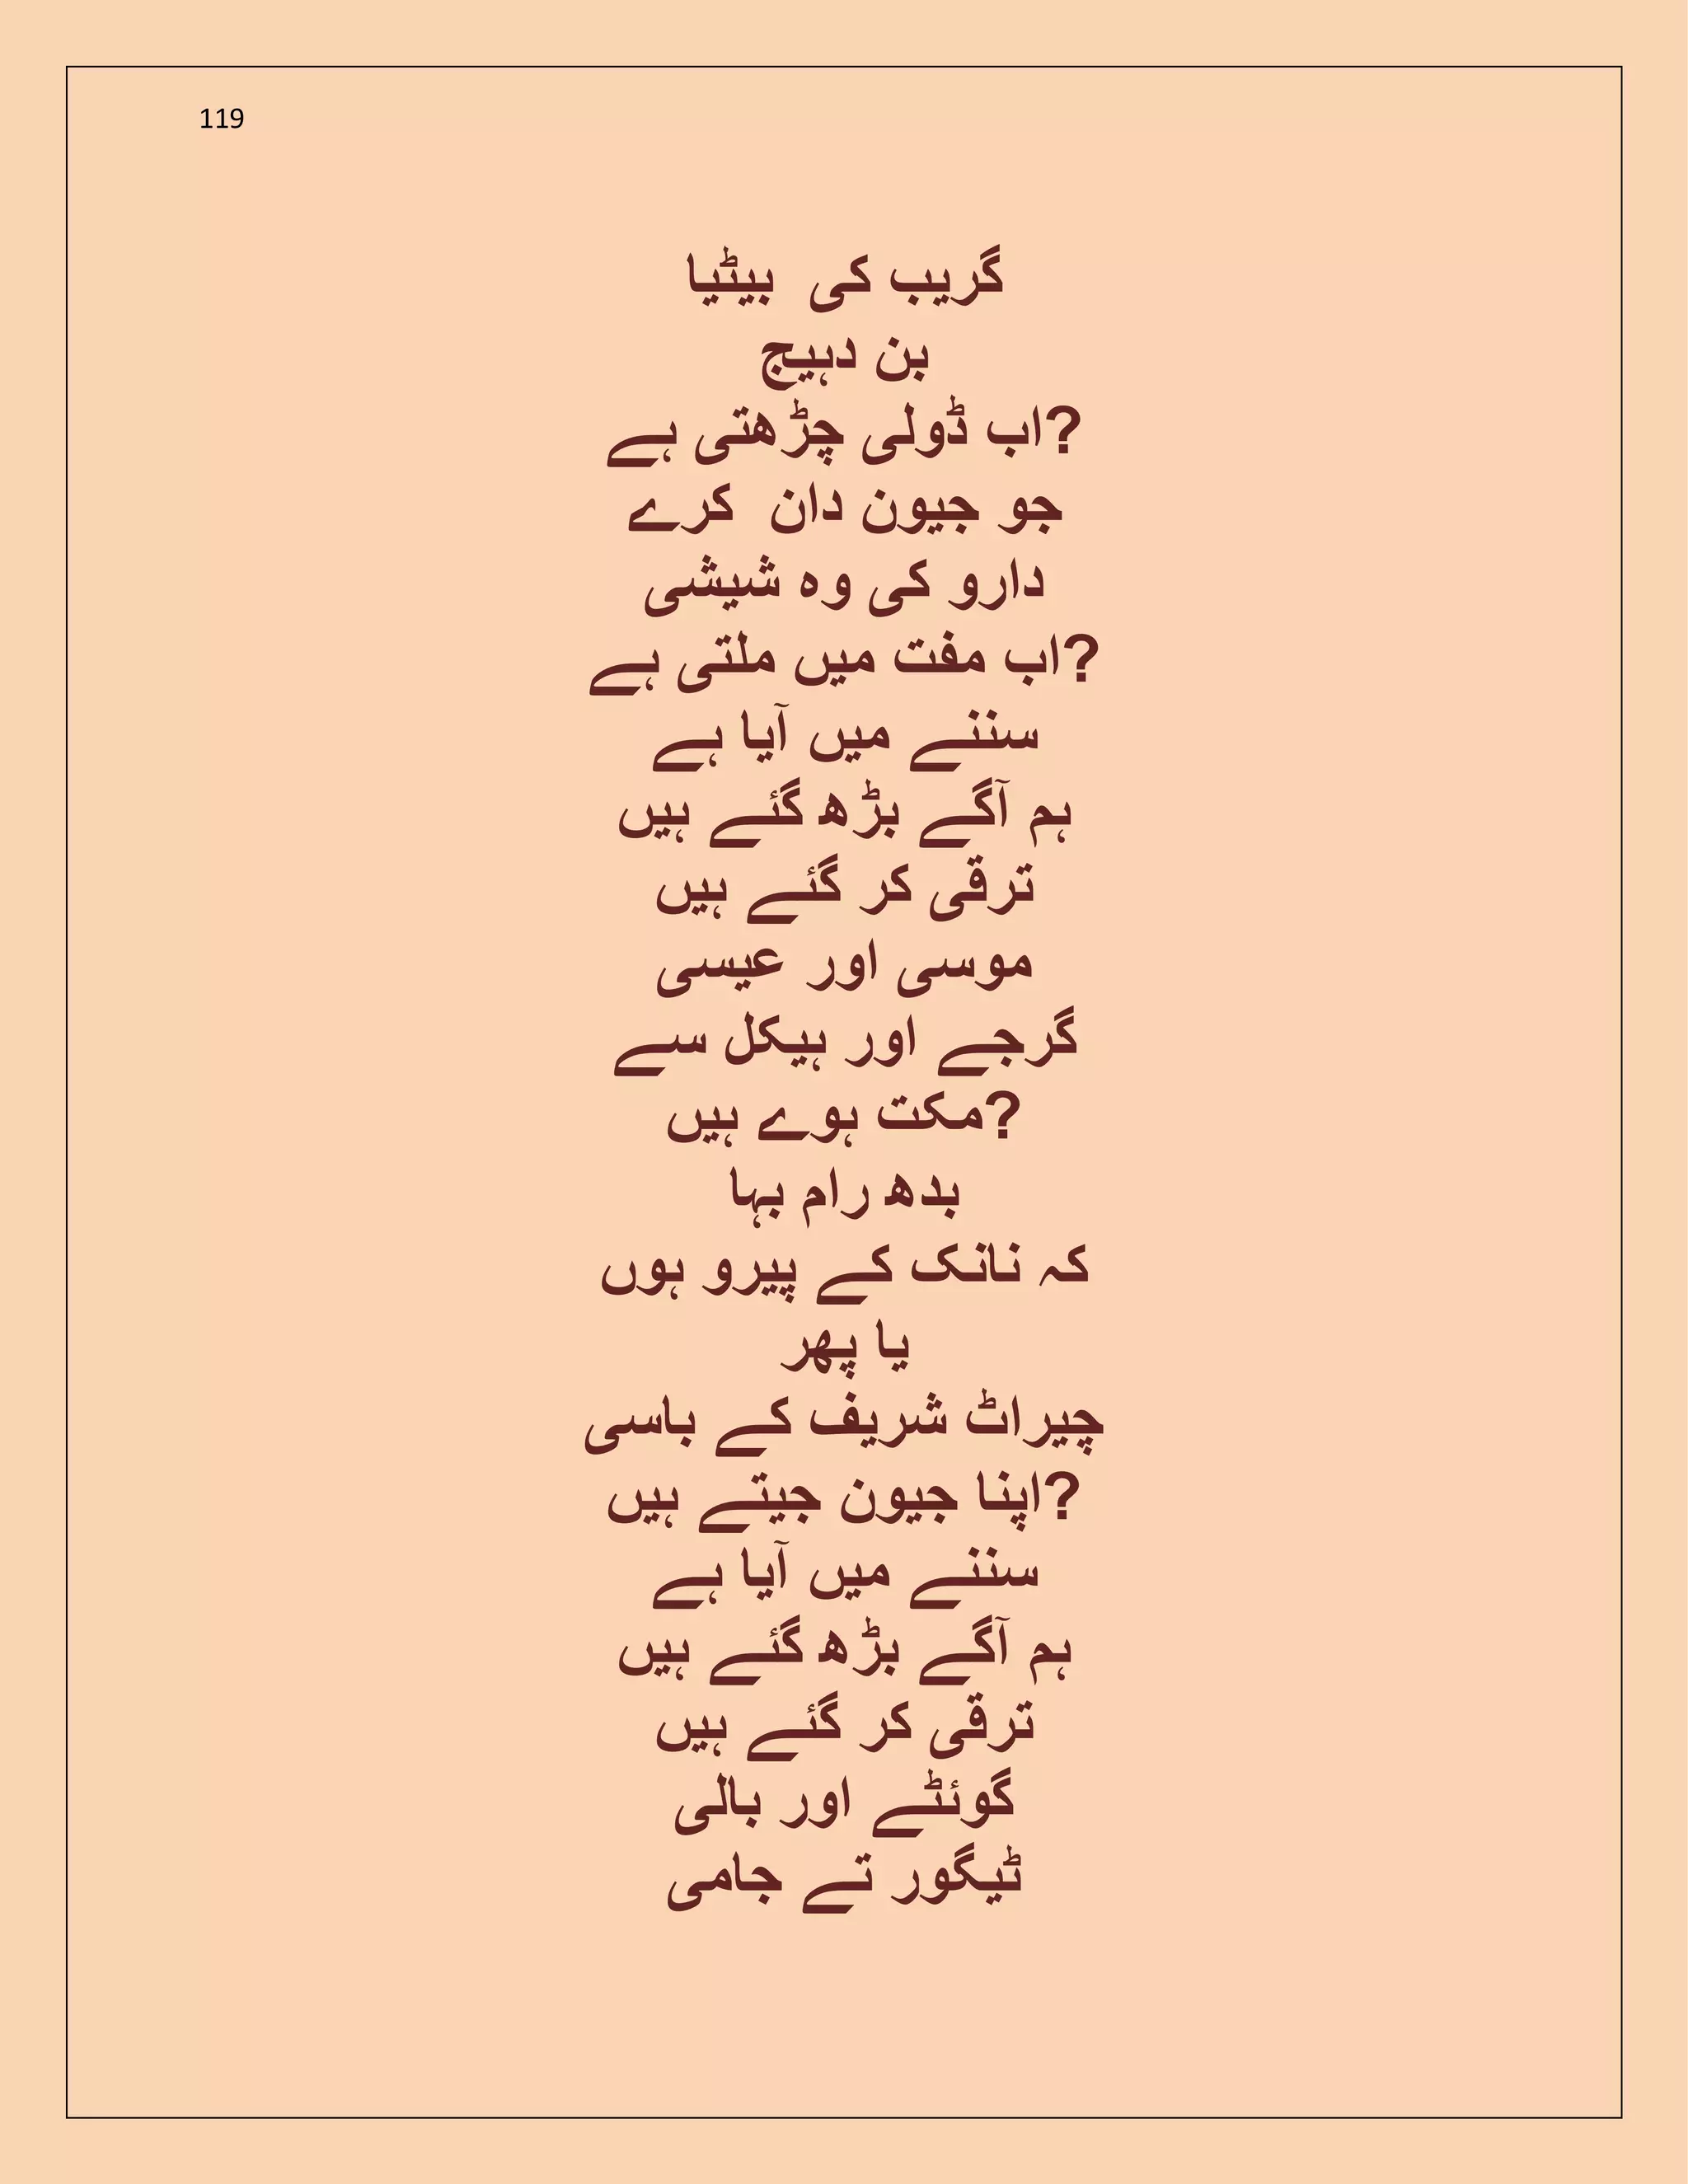 119
گریب کی بیٹیا
بن دہیج
?اب ڈولی چڑھتی ہے
جو جیون دان کرے
دارو کی وہ شیشی
?اب مفت میں ملتی ہے
سننے میں آیا ہے
ہم آگے بڑھ گئے ہیں
ترقی کر گئے ہیں
موسی اور عیسی
گرجے اور ہیکل سے
?مکت ہوے ہیں
بدھ رام بہا
کہ نانک کے پیرو ہوں
یا پھر
چیراٹ شریف کے باسی
?اپنا جیون جیتے ہیں
سننے میں آیا ہے
ہم آگے بڑھ گئے ہیں
ترقی کر گئے ہیں
گوئٹے اور بالی
ٹیگور تے جامی